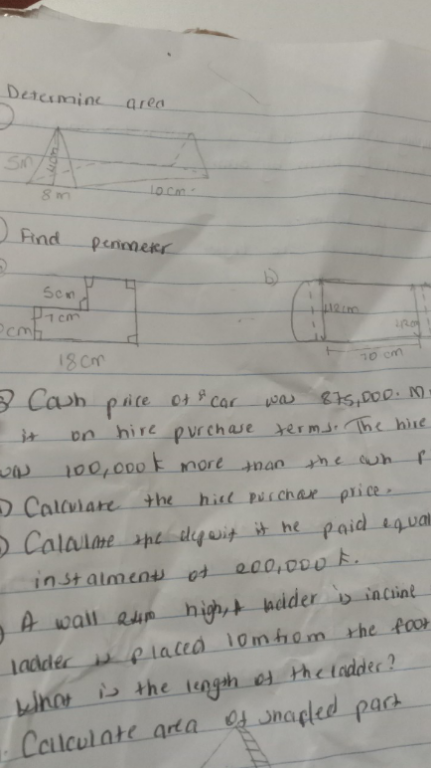 Determine area
5m
8m
10cm
Find perimeter
5cm
7cm
cm
18cm
b)
42cm
70 cm
3 Cash price of a car was 875,000.
it on hire purchase terms. The hire
was 100,000k more than the cash p
Calculate the hire purchase price.
Calculate the deposit if he paid equal
instalments of 200,000k.
A wall high, ladder is incline
ladder is placed 10m from the foot
What is the length of the ladder?
Calculate area of shaded part